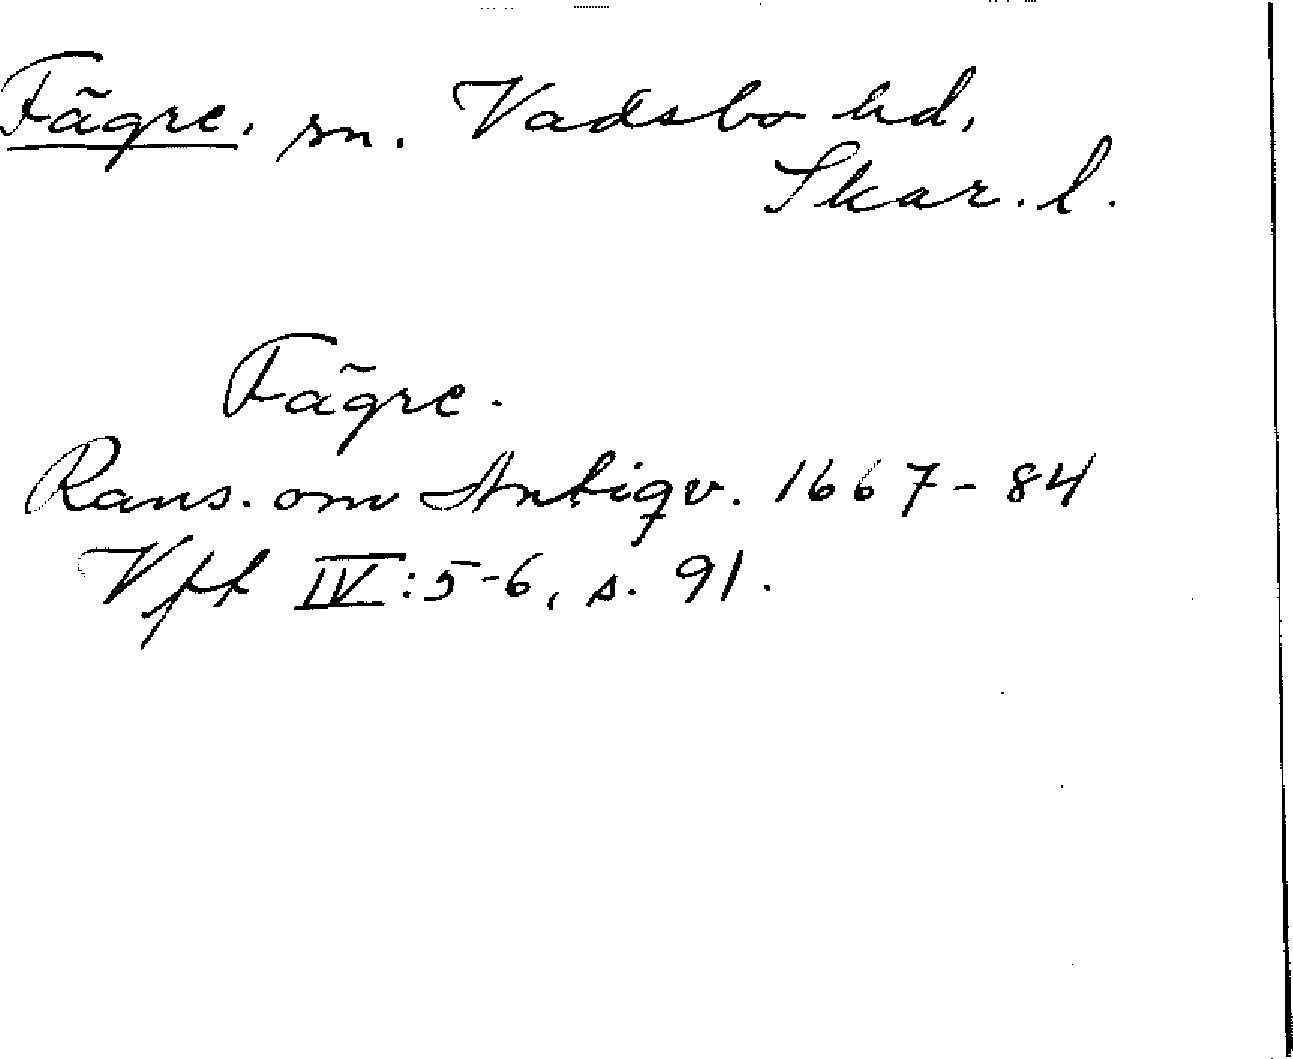 Fägre, sn. Vadsbo hd,
Skar. l.
Fägre.
Rans. om Antiqv. 1667-84
Vft IV:5-6, s. 91.